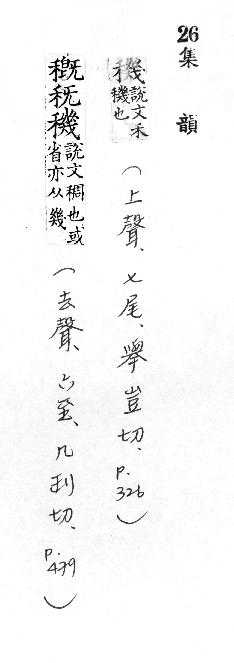 26 集韻
穖說文禾穖也(上聲、七尾、舉豈切、p.326)
穊𥞁穖說文稠也或省亦从幾(去聲、六至、几利切、p.479)